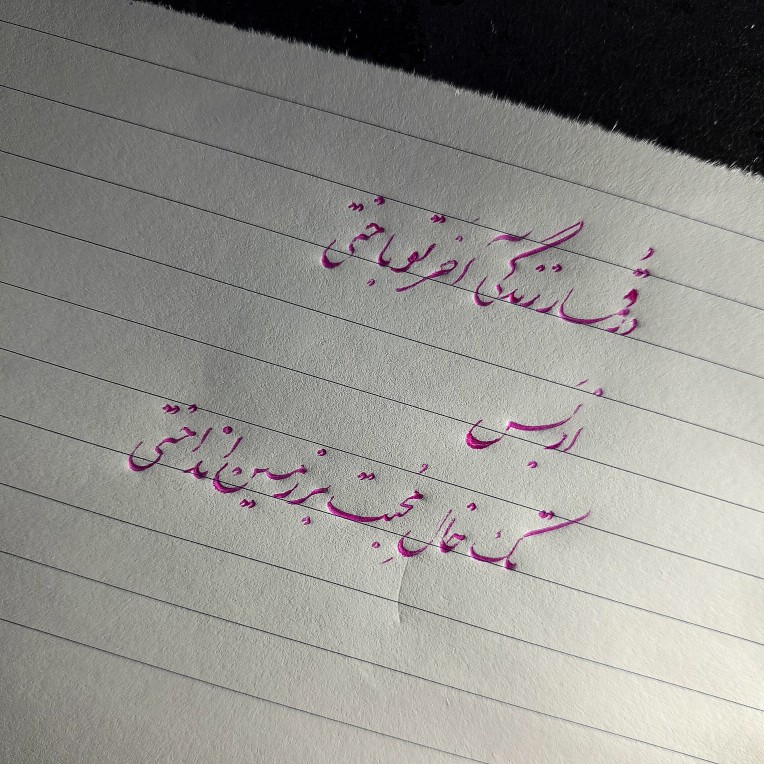 در قُمار زندگی آخَر تو باختی
از بَس
تک خال مُحبت بر زمین انداختی